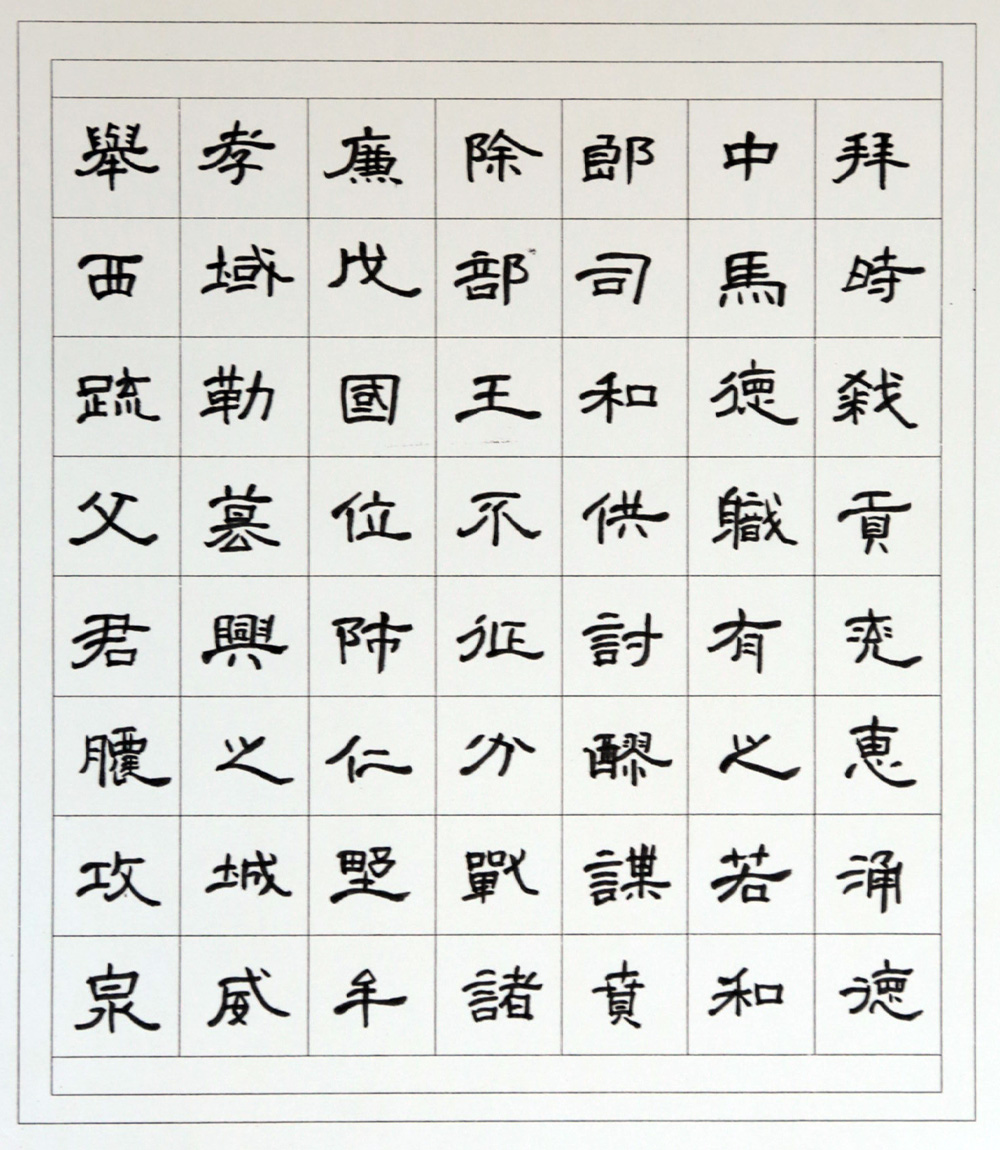 舉孝廉除郎中拜
西域戊部司馬時
疏勒國王和德弒
父篡位不供職貢
君興師征討有兗
膿之仁分醪之惠
攻城野戰謀若涌
泉威牟諸賁和德